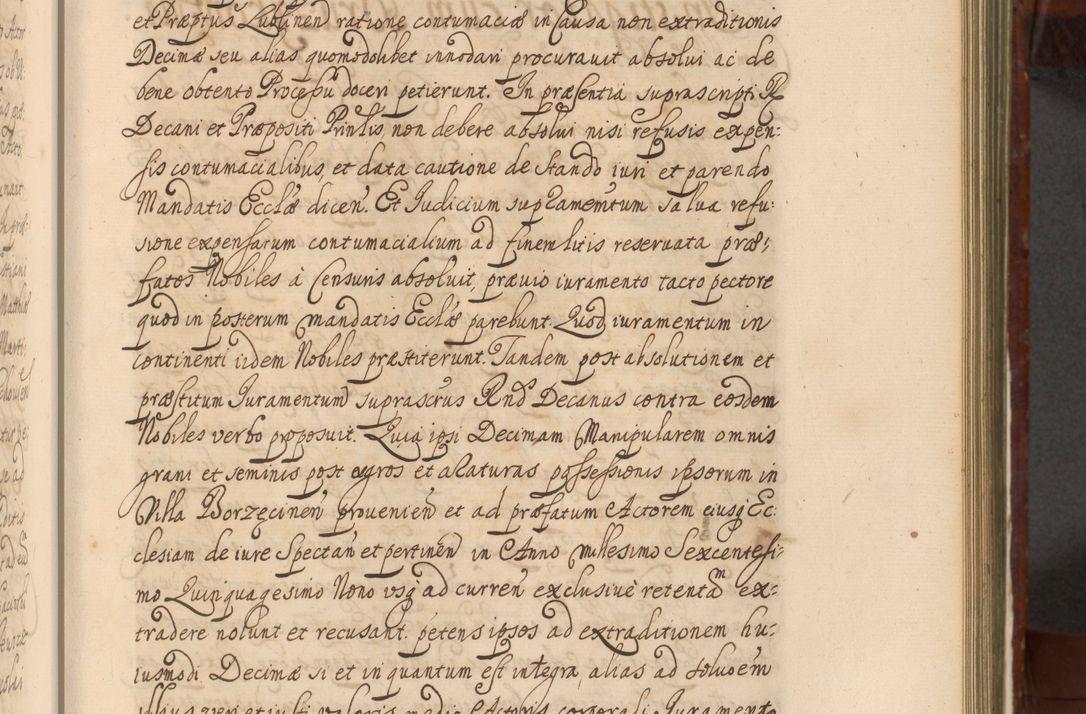 et Præptus Lublinen̄ ratione contumaciæ in Causa non extraditionis
Decimæ seu alias quomodolibet innodari procurauit absolui ac de
bene obtento Processu doceri petierunt. In præsentia suprascripti R
Decani et Præpositi Prinlis, non debere absolui nisi refusis expen:
sis contumacialibus, et data cautione de stando iuri et parendo
Mandatis Ecclæ dicen̄. Et Iudicium suplamentum salua refu:
sione expensarum contumacialium ad finem litis reseruata præ:
fatos Nobiles à Censuris absoluit, præuio iuramento tacto pectore
quod in posterum mandatis Ecclæ parebunt. Quod iuramentum in
continenti iidem Nobiles præstiterunt. Tandem post absolutionem et
præstitum Iuramentum suprascrus Rnd Decanus contra eosdem
Nobiles verbo pproposuit. Quia ipsi Decimam Manipularem omnis
grani et seminis post agros et araturas possessionis ipsorum in
Villa Borzęcinen̄ prouenien̄ et ad præfatum Actorem eiusq Ec:
clesiam de iure spectan̄ et pertinen̄ in Anno millesimo Sexcentesi:
mo Quinquagesimo Nono vsq ad curren̄ exclusiuè retentam ex:
tradere nolunt et recusant. petens ipsos ad extraditionem hu:
iusmodi Decimæ si et in quantum est integra, alias ad soluoem
illius veri et iusti valoris medio Actoris corporali Iuramento